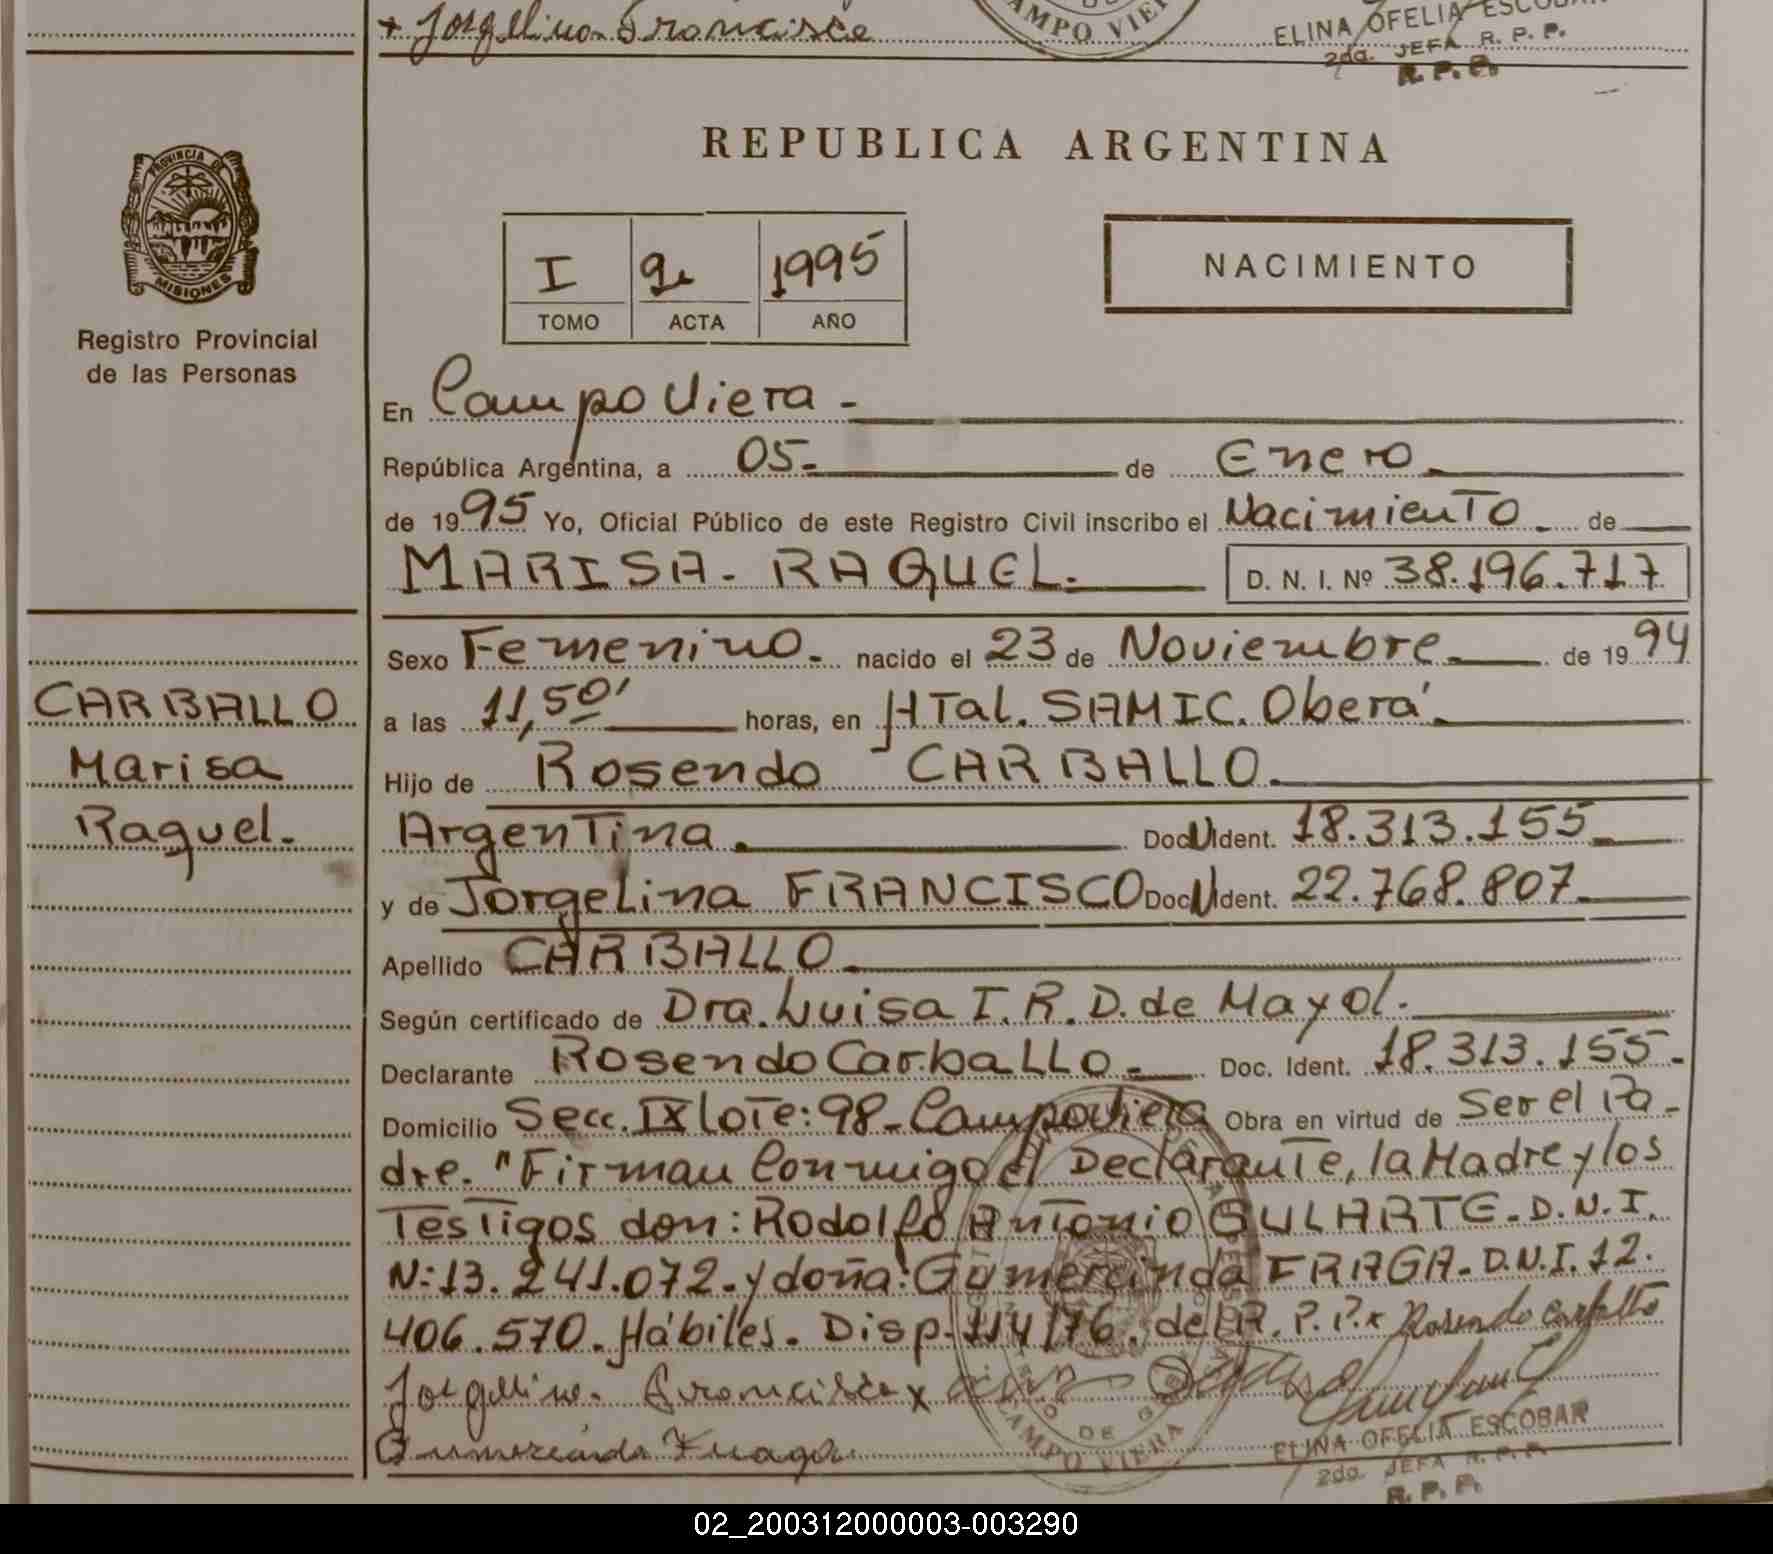 + Jorgelina Francisco
CAMPO VIERA
ELINA OFELIA ESCOBAR
2da. JEFA R. P. P.
R. P. P.
PROVINCIA DE
MISIONES
Registro Provincial
de las Personas
REPUBLICA ARGENTINA
I 9 1995
TOMO ACTA AÑO
NACIMIENTO
En Campo Viera -
República Argentina, a 05- de Enero
de 1995 Yo, Oficial Público de este Registro Civil inscribo el Nacimiento de
MARISA - RAQUEL. D. N. I. Nº 38.196.717
Sexo Femenino. nacido el 23 de Noviembre de 1994
a las 11,50' horas, en HTal. SAMIC. Oberá
Hijo de Rosendo CARBALLO.
Argentina. Doc. Ident. 18.313.155
y de Jorgelina FRANCISCO Doc. Ident. 22.768.807
Apellido CARBALLO
Según certificado de Dra. Luisa I. R. D. de Mayol.
Declarante Rosendo Carballo Doc. Ident. 18.313.155-
Domicilio Secc. IX lote: 98- Campo Viera Obra en virtud de Ser el Pa-
dre. "Firman Conmigo el Declarante, la Madre y los
Testigos don: Rodolfo Antonio GULARTE - D.N.I.
N: 13.241.072 - y doña: Gumercinda FRAGA - D.N.I. 12.
406.570. Hábiles. Disp. 114/76. del R. P. P. x Rosendo Carballo
Jorgelina Francisco x
Gumercinda Fraga
CAMPO VIERA
ELINA OFELIA ESCOBAR
2da. JEFA R. P. P.
R. P. P.
CARBALLO
Marisa
Raquel.
02_200312000003-003290